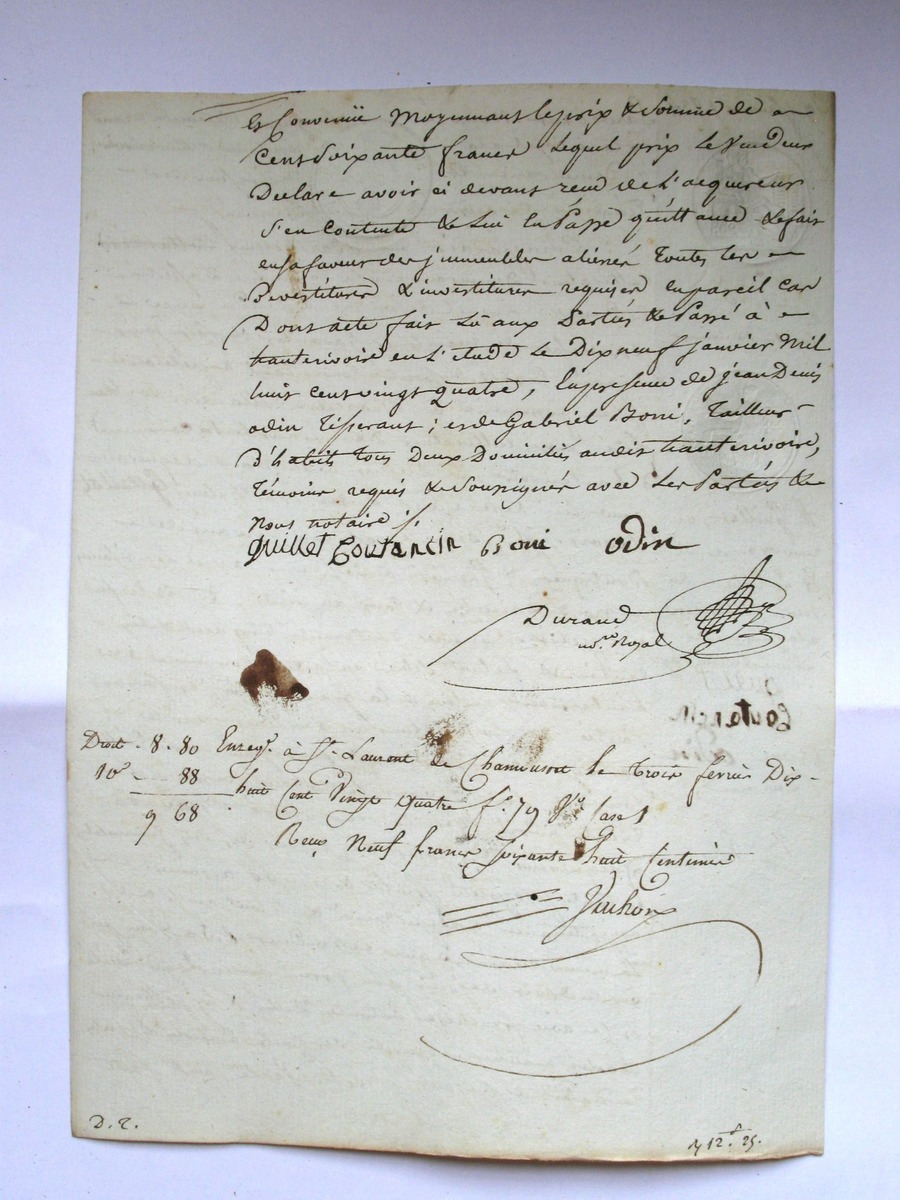 Et Convenüe Moyennant le prix & Somme de
Cent Soixante francs lequel prix le Vendeur
Declare avoir ci devant reçu de l'acquereur
s'en Contente & Lui en Passe quittance & fait
en sa faveur des jmmeubles aliénés Toutes les
Devestitures & investitures requises en pareil cas
Dont acte fait Lû aux Parties & Passé à
hauterivoire en l'Etude Le Dix neuf janvier Mil
huit cent vingt quatre, En presence de jean Denis
odin Tisserant; et de Gabriel Boni, Tailleur
d'habits Tous Deux Domiciliés audit hauterivoire,
Témoins requis & Soussignés avec Les Parties &
Nous notaire
Guillet Coutancin Boni odin
Durand
no.re Royal
Coutancin
Droit - 8 - 80 Enreg.é à S.t Laurent de Chamousset le trois fevrier Dix-
10.e - 88 huit Cent Vingt quatre f.o 79 V.o Case 1
9 68 Reçu Neuf francs soixante huit Centimes
D. T.
12. 25.